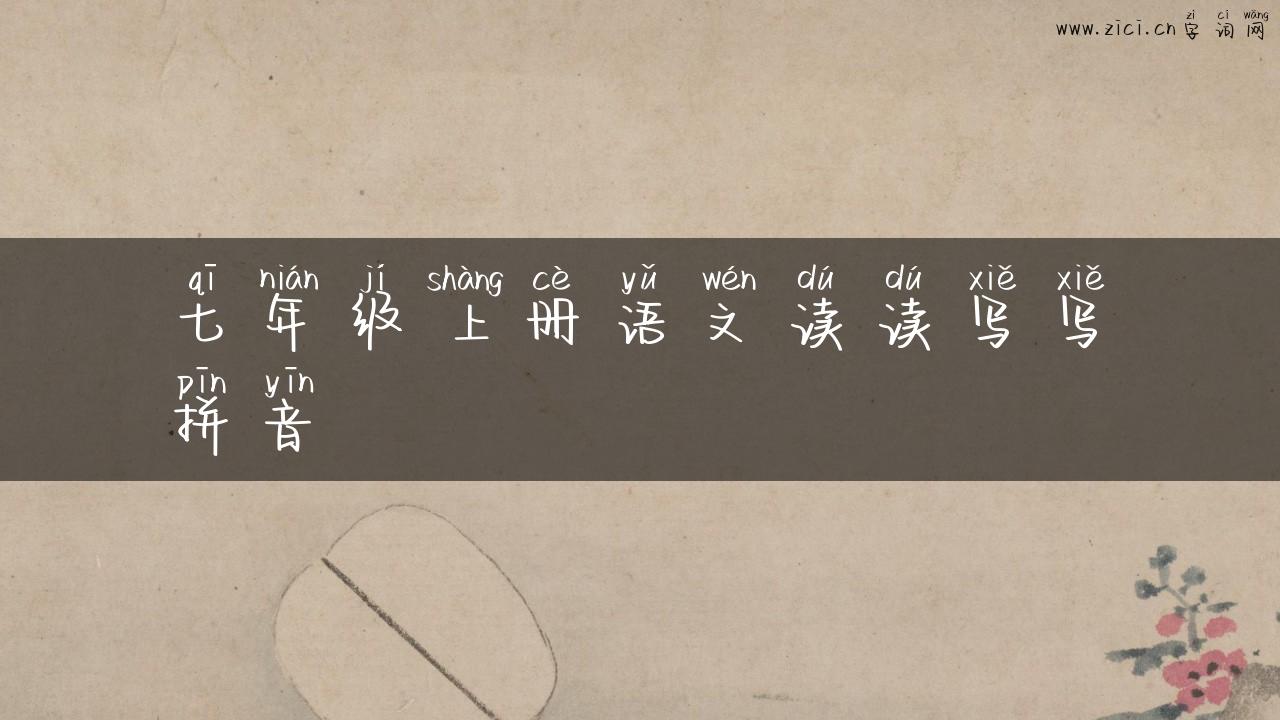 zì cí wǎng
www.zici.cn 字 词 网
qī nián jí shàng cè yǔ wén dú dú xiě xiě
七 年 级 上 册 语 文 读 读 写 写
pīn yīn
拼 音